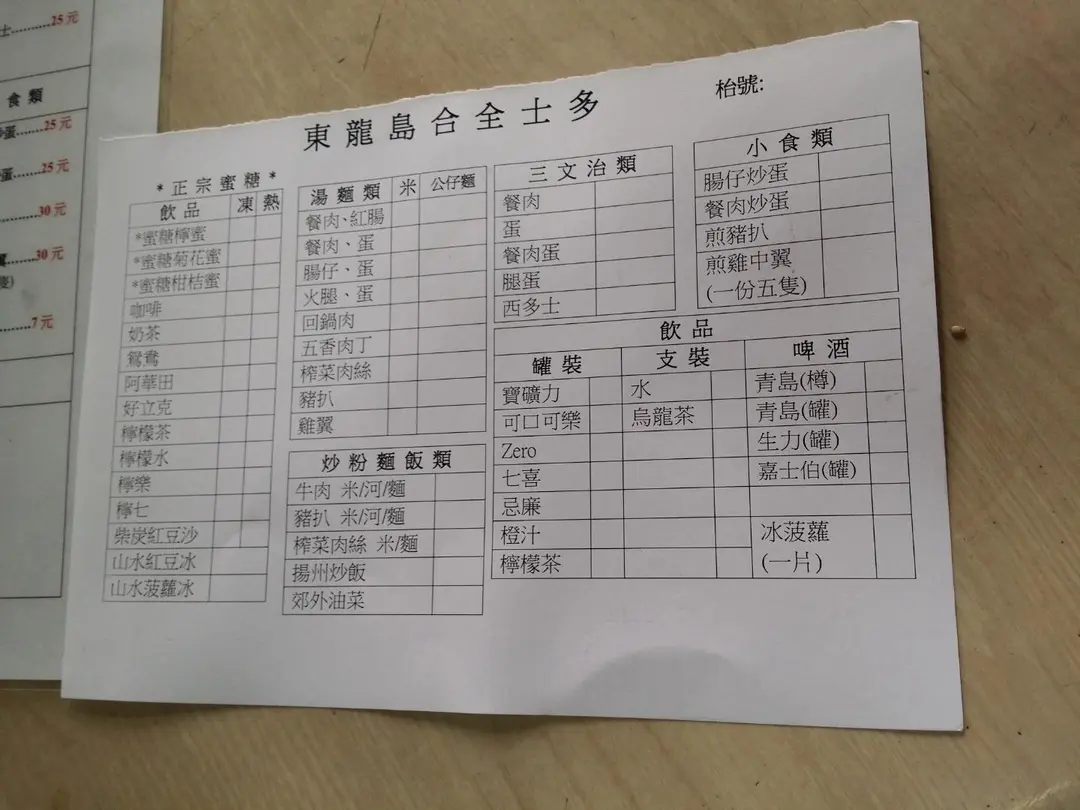 士.........25元
食類
蛋.......25元
蛋.......25元
30元
30元
7元
東龍島合全士多
枱號:
*正宗蜜糖*
飲品 凍 熱
*蜜糖檸蜜
*蜜糖菊花蜜
*蜜糖柑桔蜜
咖啡
奶茶
鴛鴦
阿華田
好立克
檸檬茶
檸檬水
檸樂
檸七
柴炭紅豆沙
山水紅豆冰
山水菠蘿冰
湯麵類 米 公仔麵
餐肉、紅腸
餐肉、蛋
腸仔、蛋
火腿、蛋
回鍋肉
五香肉丁
榨菜肉絲
豬扒
雞翼
炒粉麵飯類
牛肉 米/河/麵
豬扒 米/河/麵
榨菜肉絲 米/麵
揚州炒飯
郊外油菜
三文治類
餐肉
蛋
餐肉蛋
腿蛋
西多士
小食類
腸仔炒蛋
餐肉炒蛋
煎豬扒
煎雞中翼
(一份五隻)
飲品
罐裝 支裝 啤酒
寶礦力 水 青島(樽)
可口可樂 烏龍茶 青島(罐)
Zero 生力(罐)
七喜 嘉士伯(罐)
忌廉
橙汁 冰菠蘿
檸檬茶 (一片)